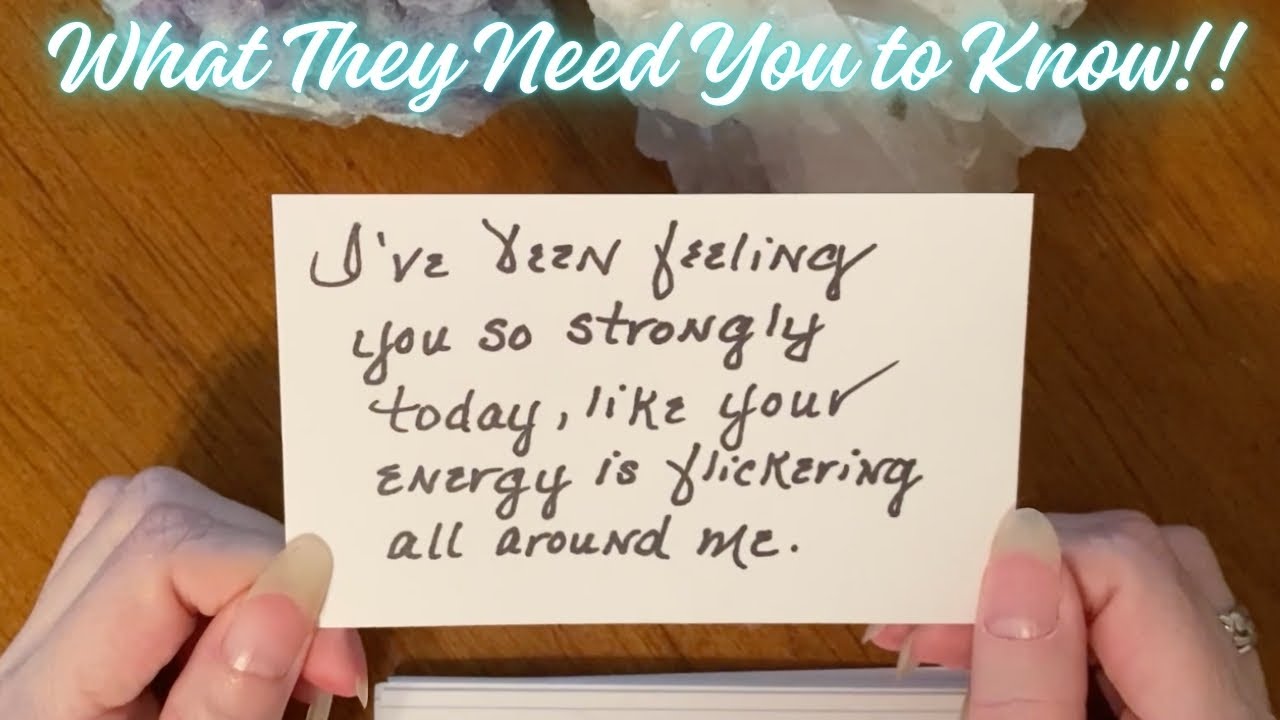 What They Need You to Know!!
I've been feeling
you so strongly
today, like your
energy is flickering
all around me.